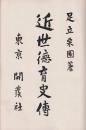 足立栗園著
近世徳育史傳
東京 開發社